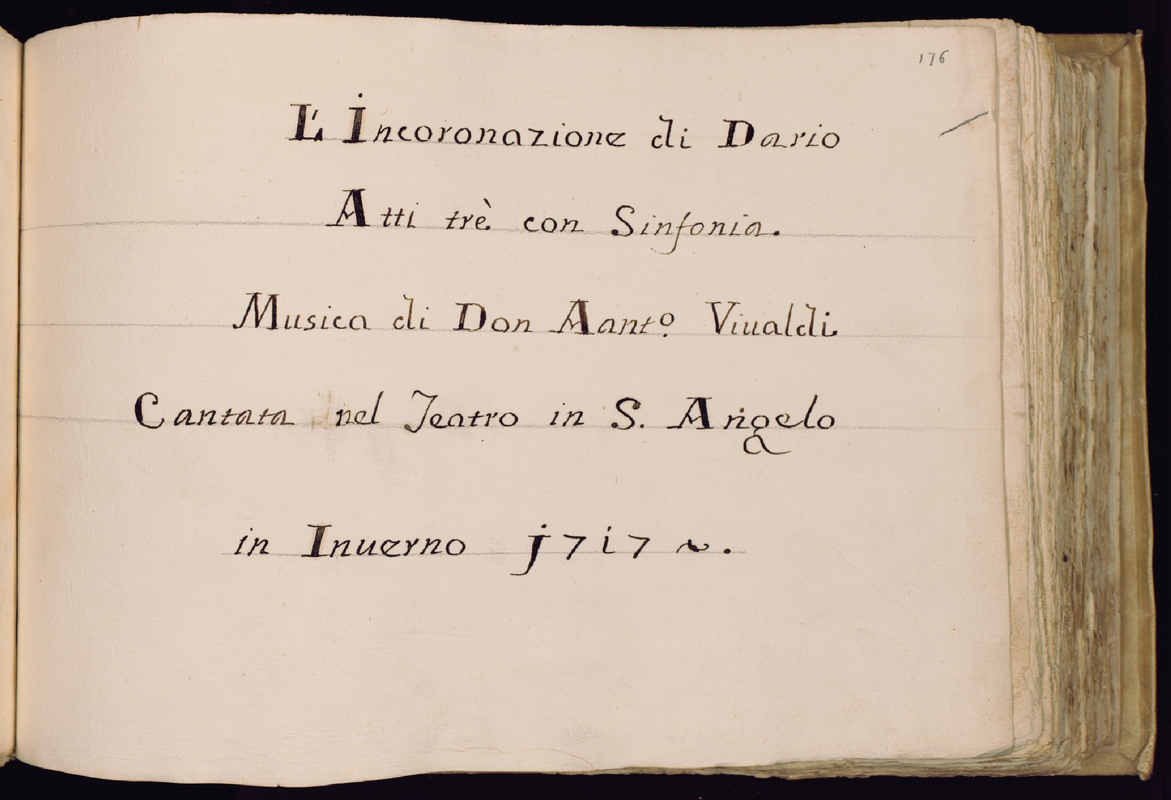 176
L' Incoronazione di Dario
Atti trè con Sinfonia.
Musica di Don Aantº. Viualdi
Cantata nel Teatro in S. Angelo
in Inuerno j7i7.